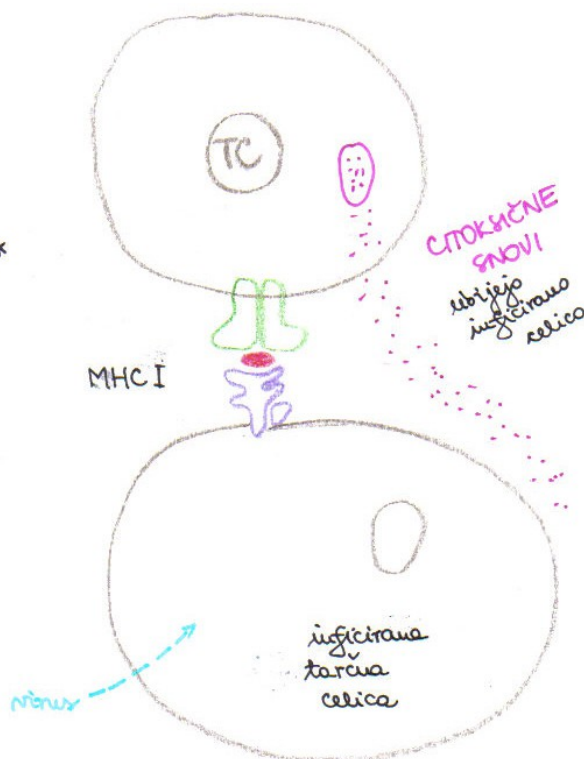 TC
*
CITOKSIČNE
SNOVI
ubijejo
inficirano
celico
MHC I
inficirana
tarčna
celica
virus